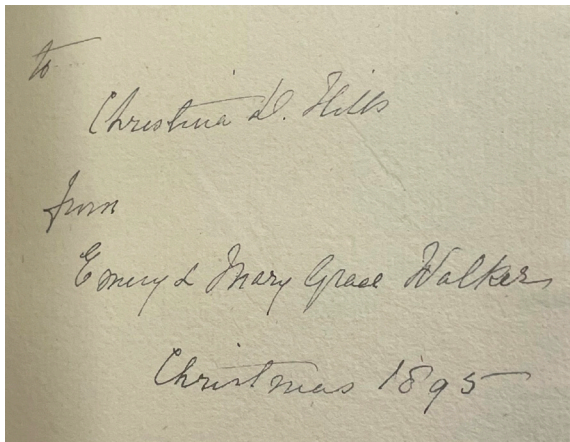 to
Christina D. Hills
from
Emery & Mary Grace Walker
Christmas 1895